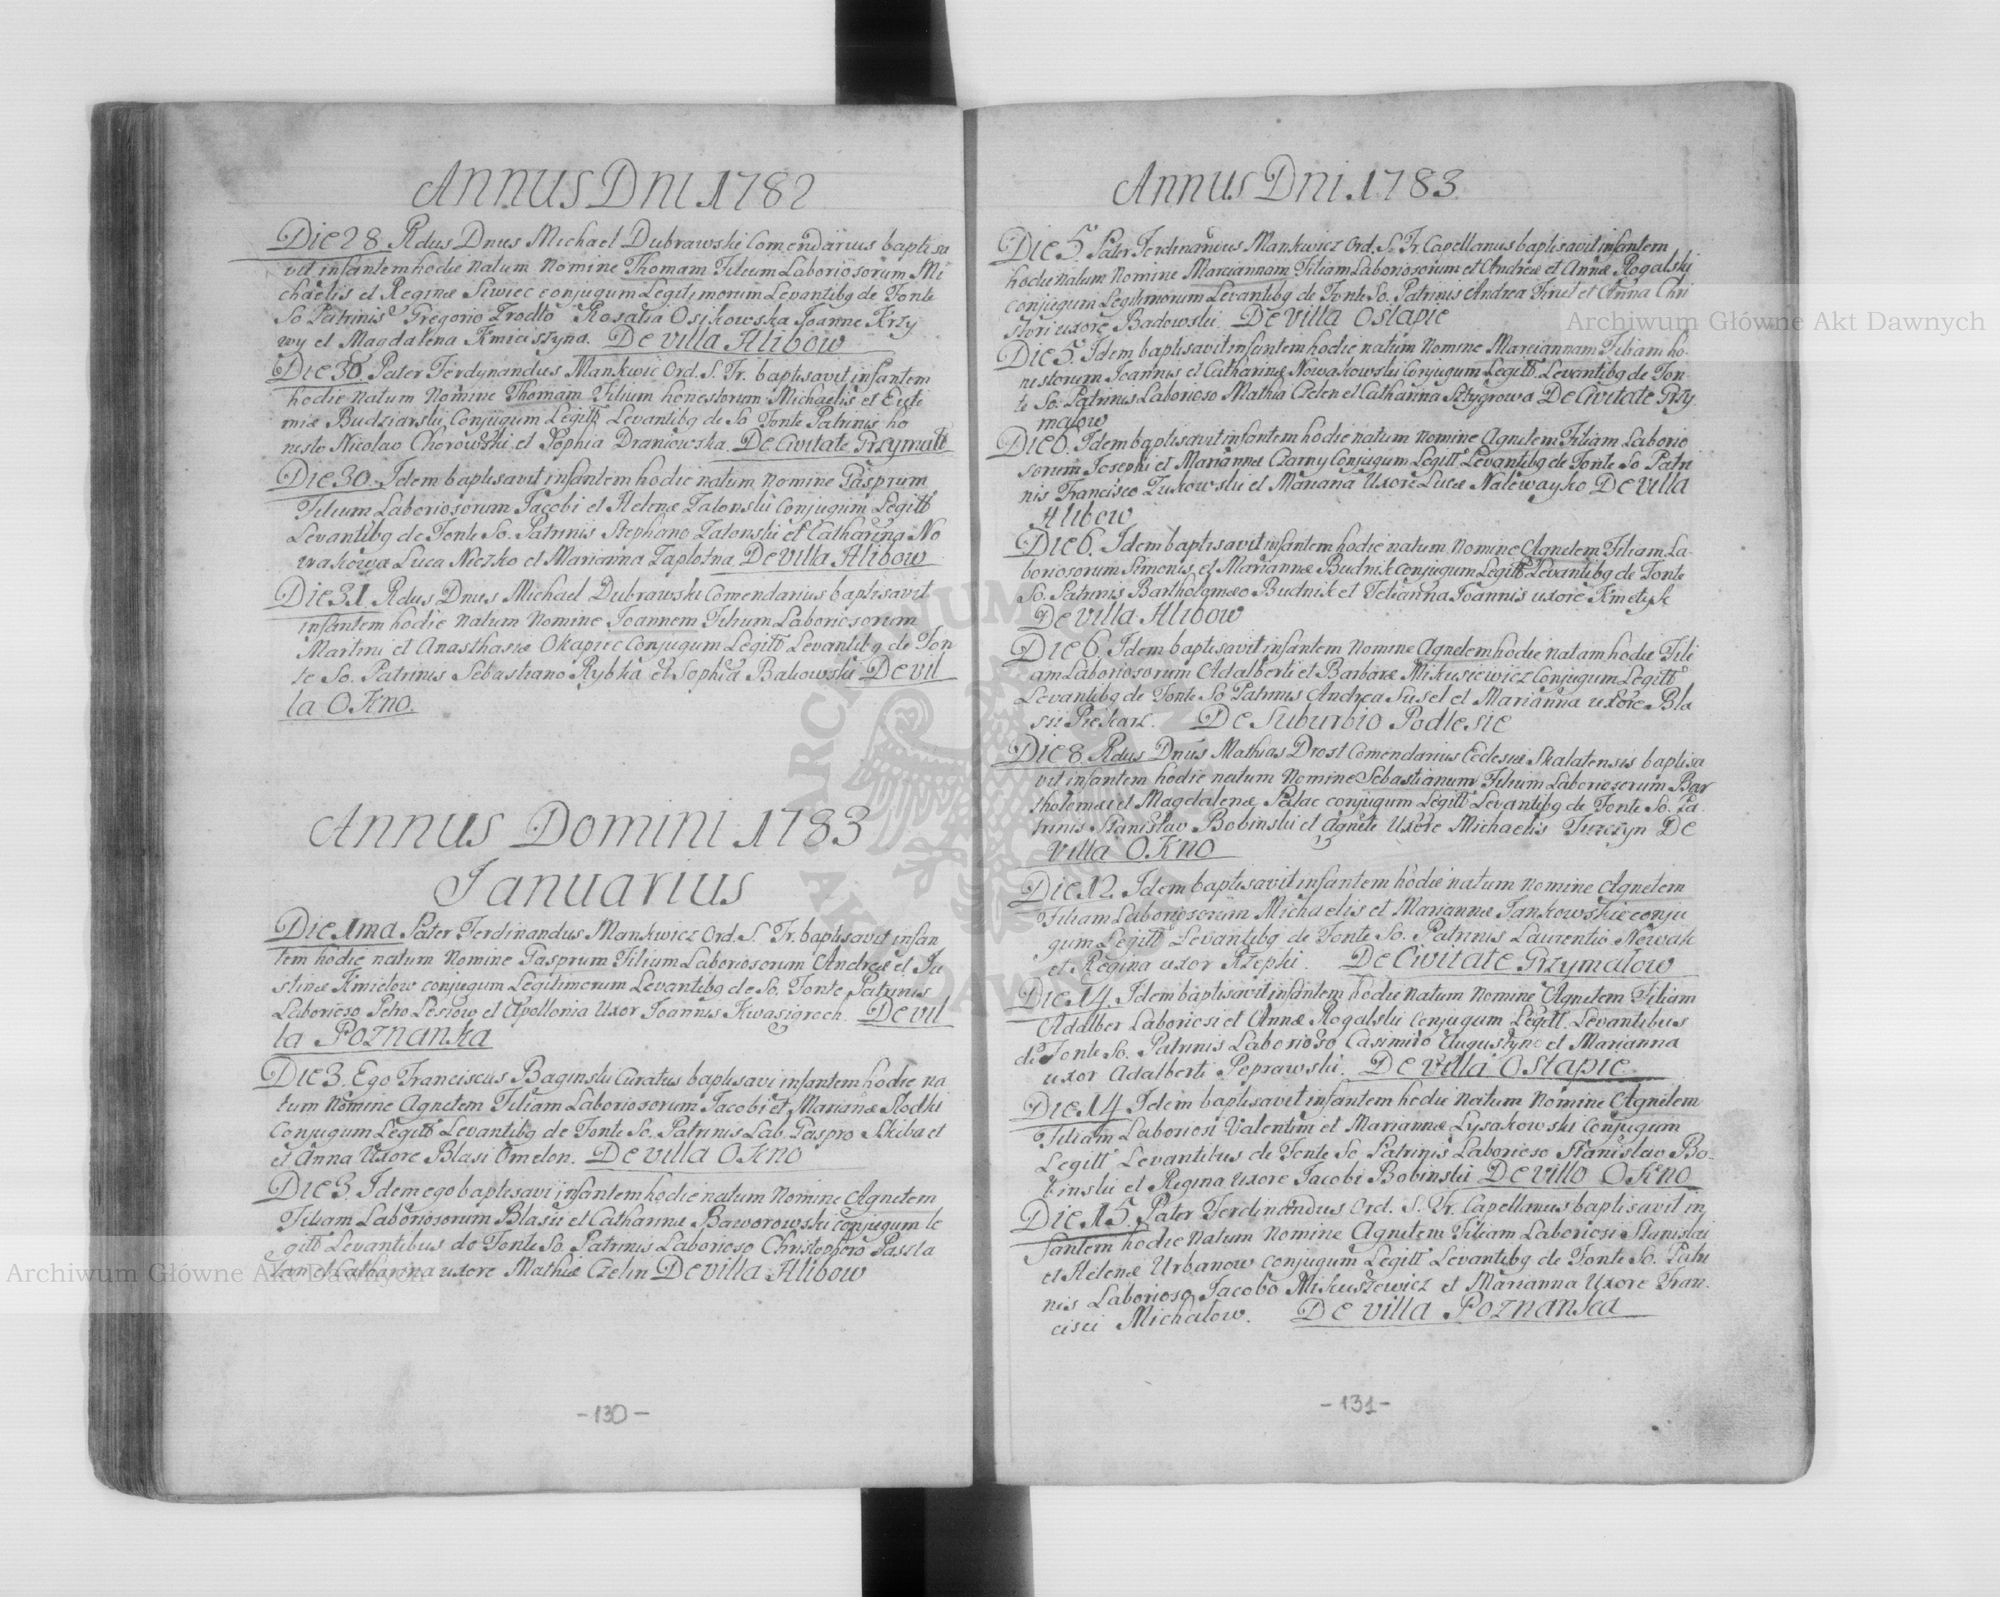 Annus Dni 1782
Die 28. Rdus Dnus Michael Dubrawski Comendarius baptisa
vit infantem hodie natum Nomine Thomam Filium Laboriosorum Mi
chaelis et Reginæ Siwiec conjugum Legitimorum Levantibg de Fonte
So Patrinis Gregorio Zrodło Rosalia Osikowska Joanne Krzy
wy et Magdalena Kmiciszyna. De villa Hlibow
Die 30. Pater Ferdynandus Mankwic Ord. S. Fr. baptisavit infantem
hodie natum Nomine Thomam Filium honestorum Michaelis et Euti
miæ Budziarski Conjugum Legitt Levantibg de So Fonte Patrinis ho
nesto Nicolao Chorowski et Sophia Draniowska. De Civitate Grzymalt
Die 30. Idem baptisavit infantem hodie natum nomine Gasprum
Filium Laboriosorum Jacobi et Helenæ Zalonski Conjugum Legitt
Levantibg de Fonte So. Patrinis Stephano Zalonski et Catharina No
wakowa Luca Niczko et Marianna Zaplotna De villa Hlibow
Die 31. Rdus Dnus Michael Dubrawski Comendarius baptisavit
infantem hodie natum Nomine Joannem Filium Laboriosorum
Martini et Anasthasiæ Okapiec Conjugum Legitt Levantibg de Fon
te So. Patrinis Sebastiano Rybka et Sophia Bakowski De vil
la Okno.
Annus Domini 1783
Januarius
Die 1ma Pater Ferdinandus Mankwicz Ord. S. Fr. baptisavit infan
tem hodie natum Nomine Gasprum Filium Laboriosorum Andreæ et Ju
stinæ Kmielow conjugum Legitimorum Levantibg de So. Fonte Patrinis
Laborioso Petro Lesiow et Apollonia Uxor Joannis Kwasigroch. De vil
la Poznanka
Die 3. Ego Franciscus Baginski Curatus baptisavi infantem hodie na
tum Nomine Agnetem Filiam Laboriosorum Jacobi et Mariannæ Słodki
Conjugum Legitt Levantibg de Fonte So. Patrinis Lab. Gaspro Skiba et
et Anna Uxore Blasi Omelon. De villa Okno
Die 3. Idem ego baptisavi infantem hodie natum Nomine Agnetem
Filiam Laboriosorum Blasii et Catharinæ Baworowski conjugum le
gitt Levantibus de Fonte So. Patrinis Laborioso Christophoro Passla
et Catharina uxore Mathiæ Czelin De villa Hlibow
-130-
Annus Dni 1783
Die 5. Pater Ferdinandus Mankwicz Ord. S. Fr. Capellanus baptisavit infantem
hodie natum Nomine Marciannam Filiam Laboriosorum et Andreæ et Annæ Rogalski
conjugum Legitimorum Levantibg de Fonte So. Patrinis Andrea Firut et Anna Chri
stori uxore Badowski. De villa Ostapie
Die 5. Idem baptisavit infantem hodie natum Nomine Marciannam Filiam ho
nestorum Joannis et Catharinæ Nowakowski Conjugum Legitt. Levantibg de Fon
te So. Patrinis Laborioso Mathia Czelen et Catharina Sztygrowa De Civitate Grzy
malow
Die 6. Idem baptisavit infantem hodie natum nomine Agnetem Filiam Laborio
sorum Josephi et Mariannæ Czarny Conjugum Legitt Levantibg de Fonte So Patri
nis Francisco Zukowski et Mariana Uxore Lucæ Nalewayko De villa
Hlibow
Die 6. Idem baptisavit infantem hodie natum Nomine Agnetem Filiam La-
boriosorum Simonis et Mariannæ Budnik conjugum Legitt Levantibg de Fonte
So. Patrinis Bartholomæo Budnik et Felianna Joannis uxore Kmetyk
De villa Hlibow
Die 6. Idem baptisavit infantem Nomine Agnetem hodie natam hodie Fili
am Laboriosorum Adalberti et Barbaræ Mikusiewicz Conjugum Legitt
Levantibg de Fonte So Patrinis Andrea Susel et Marianna uxore Bla
sii Piekarz. De Suburbio Podlesie
Die 8. Rdus Dnus Mathias Drost Comendarius Ecclesiæ Skalatensis baptisa
vit infantem hodie natum Nomine Sebastianum Filium Laboriosorum Bar
tholomæi et Magdalenæ Palac conjugum Legitt Levantibg de Fonte So. Pa
trinis Stanislao Bobinski et Agnete Uxore Michaelis Turczyn De
villa Okno
Die 12. Idem baptisavit infantem hodie natum Nomine Agnetem
Filiam Laboriosorum Michaelis et Mariannæ Jankowskie conju
gum Legitt Levantibg de Fonte So. Patrinis Laurentio Nowak
et Regina uxor Rzepki. De Civitate Grzymalow
Die 14. Idem baptisavit infantem hodie Natum Nomine Agnetem Filiam
Adalber Laboriosi et Annæ Rogalski Conjugum Legitt. Levantibus
de Fonte So. Patrinis Laborioso Casimiro Augustyno et Marianna
uxor Adalberti Poprawski. De villa Ostapie
Die 14 Idem baptisavit infantem hodie Natum Nomine Agnetem
Filiam Laboriosi Valentini et Mariannæ Lysakowski Conjugum
Legitt Levantibus de Fonte So Patrinis Laborioso Stanislao Bo-
binski et Regina Uxore Jacobi Bobinski De Villo Okno
Die 15. Pater Ferdinandus Ord. S. Fr. Capellanus baptisavit in
fantem hodie Natum Nomine Agnetem Filiam Laboriosi Stanislai
et Helenæ Urbanow conjugum Legitt Levantibg de Fonte So. Patri
nis Laborioso Jacobo Mikuszewicz et Marianna Uxore Fran.
cisci Michalow. De villa Poznanka
-131-
Archiwum Główne Akt Dawnych
Archiwum Główne Akt Dawnych
ARCHIWUM GŁÓWNE AKT DAWNYCH